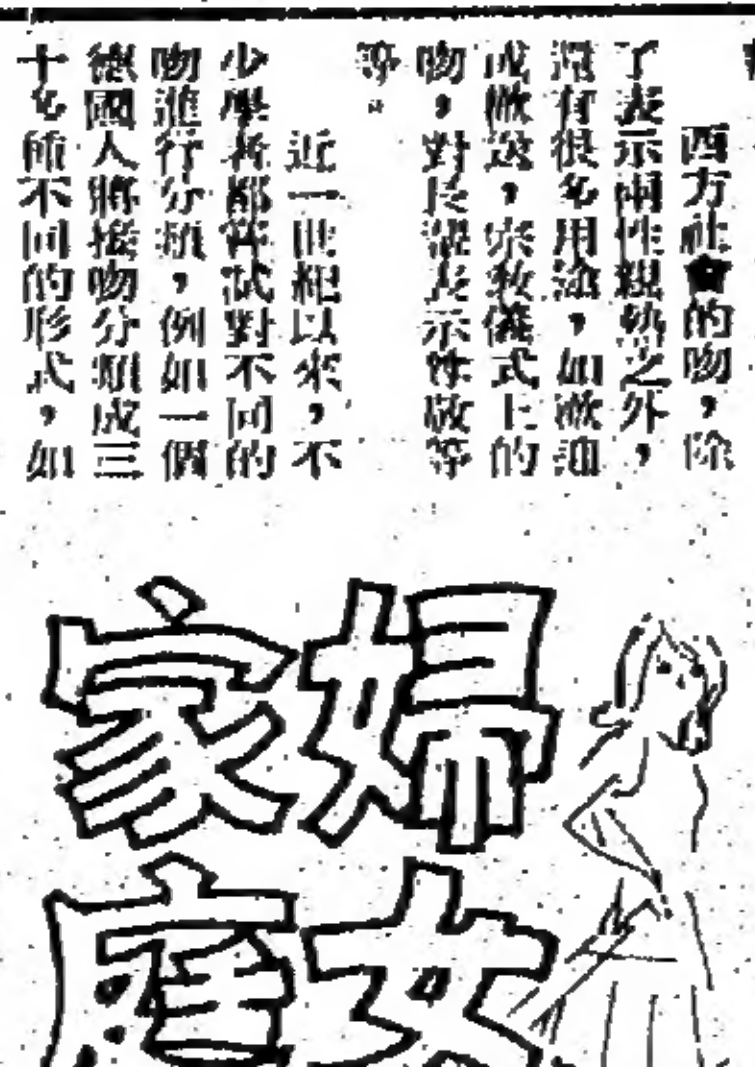 西方社會的吻，除
了表示兩性親熱之外，
還有很多用途，如歡迎
或歡送，宗教儀式上的
吻，對長輩表示尊敬等
等。
近一世紀以來，不
少學者都嘗試對不同的
吻進行分類，例如一個
德國人將接吻分類成三
十多種不同的形式，如
婦女
家庭